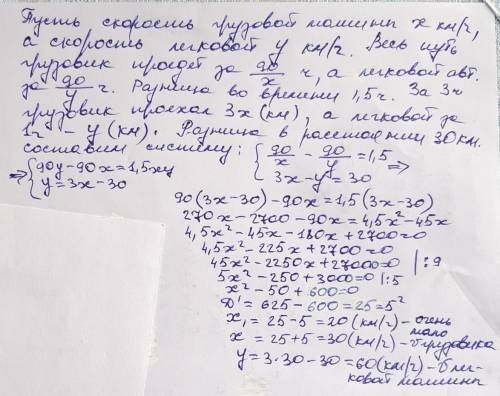 Пусть скорость грузовой машины x км/ч,
а скорость легковой y км/ч. Весь путь
грузовик проедет за 90/x ч, а легковой авт.
за 90/y ч. Разница во времени 1,5ч. За 3ч
грузовик проехал 3x (км), а легковой за
1ч - y (км). Разница в расстоянии 30км.
составим систему: { 90/x - 90/y = 1,5 =>
3x-y=30
=> { 90y-90x=1,5xy
y=3x-30
90(3x-30)-90x=1,5(3x-30)
270x-2700-90x=4,5x²-45x
4,5x²-45x-180x+2700=0
4,5x²-225x+2700=0
45x²-2250x+27000=0 |:9
5x²-250+3000=0 |:5
x²-50+600=0
D'=625-600=25=5²
x₁=25-5=20 (км/ч) - очень
мало
x=25+5=30 (км/ч) - v грузовика
y=3·30-30=60 (км/ч) - v лег-
ковой машины